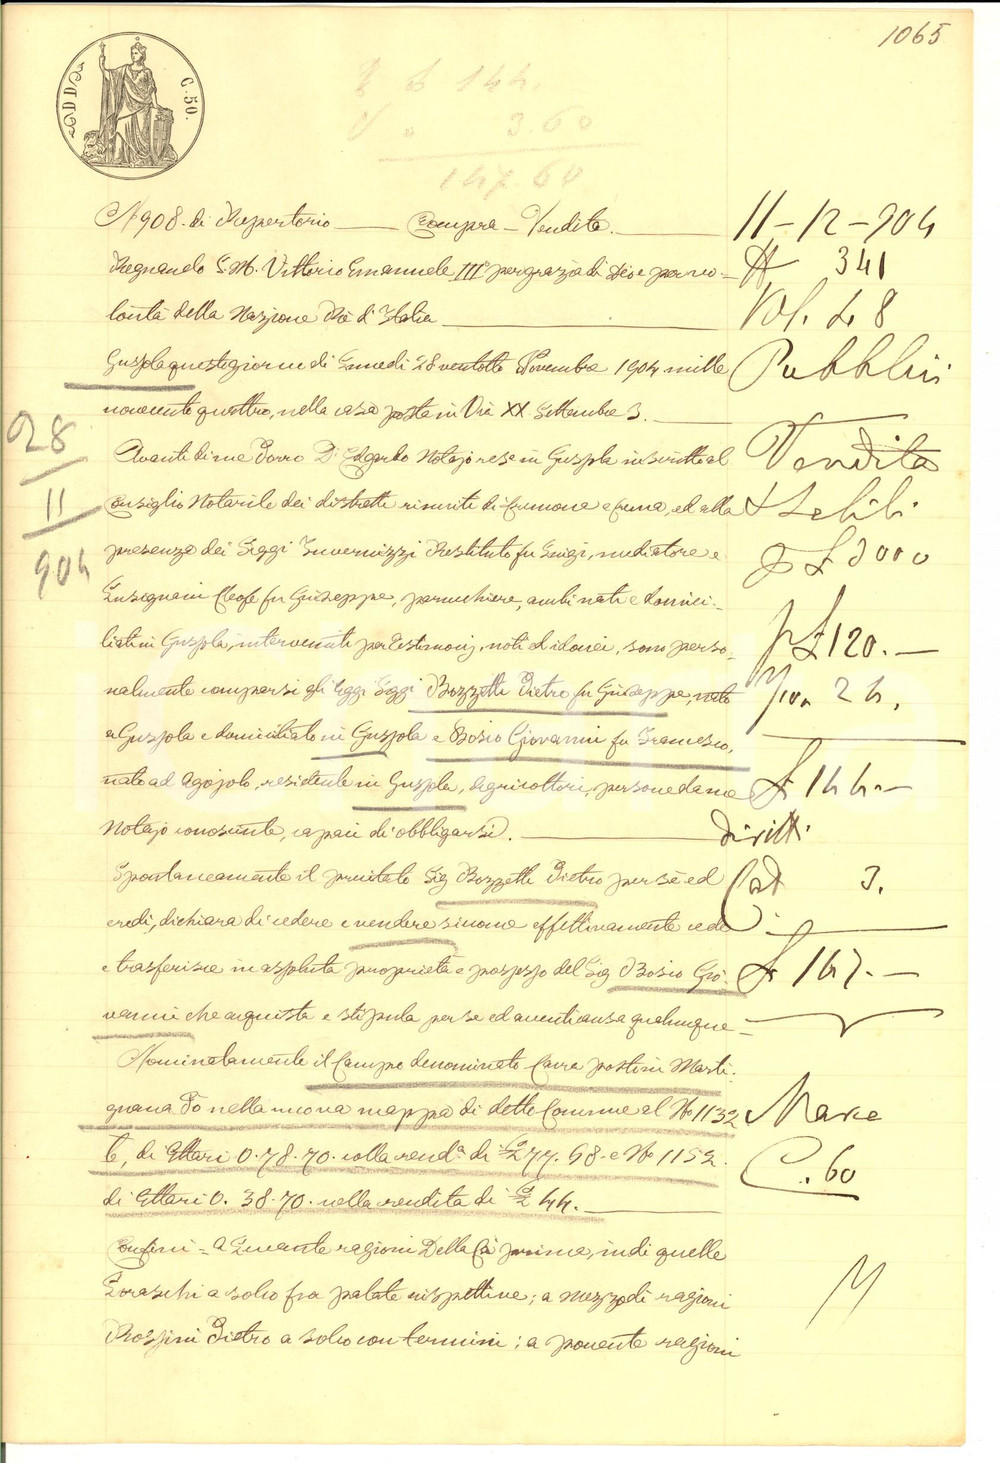 1065
C. 50.
£ 144.
3.60
147.60
N 908. di Repertorio Compra - Vendita.
Regnando S. M. Vittorio Emanuele III° per grazia di Dio e per vo-
lontà della Nazione Rè d'Italia
Gussola questo giorno di Lunedi 28 ventotto Novembre 1904 mille
novecento quattro, nella casa posta in Via XX Settembre 3.
Avanti di me Porro Dr Edgardo Notajo res.e in Gussola inscritto al
Consiglio Notarile dei distretti riuniti di Cremona e Crema, ed alla
presenza dei Siggi Invernizzi Restituto fu Luigi, mediatore e
Insegnani Cleofe fu Giuseppe, parrucchiere, ambi nati e domici-
liati in Gussola, intervenuti per testimonj, noti ed idonei, sono perso-
nalmente comparsi gli Siggi Bozzetti Pietro fu Giuseppe, nato
a Gussola e domiciliato in Gussola e Bosio Giovanni fu Francesco,
nato ad Agojolo, residente in Gussola, agricoltori, persone da me
Notajo conosciute, capaci di obbligarsi.
Spontaneamente il prefato Sig Bozzetti Pietro per sè ed
eredi, dichiara di cedere e vendere siccome effettivamente cede
e trasferisce in assoluta proprietà e possesso del Sig Bosio Gio-
vanni che acquista e stipula per se ed aventi causa qualunque
Nominatamente il Campo denominato Cavra posto in Marti-
gnana Po nella nuova mappa di detto Comune al N° 1132
b, di Ettari 0.78.70. colla rend.a di £ 77.68. e N° 1152.
di Ettari 0. 38.70. nella rendita di £ 44.
Confini = a Levante ragioni Della Cà prima, indi quelle
Boraschi a solco fra palate rispettive; a mezzodi ragioni
Rossini Pietro a solco con termini; a ponente ragioni
28
11
904
11-12-904
N 341
Vol. 48
Pubblici
Vendita
£ 3000
£ 120.-
24.
£ 144.-
diritti
Cat 3.
£ 147.-
Marce
C. 60